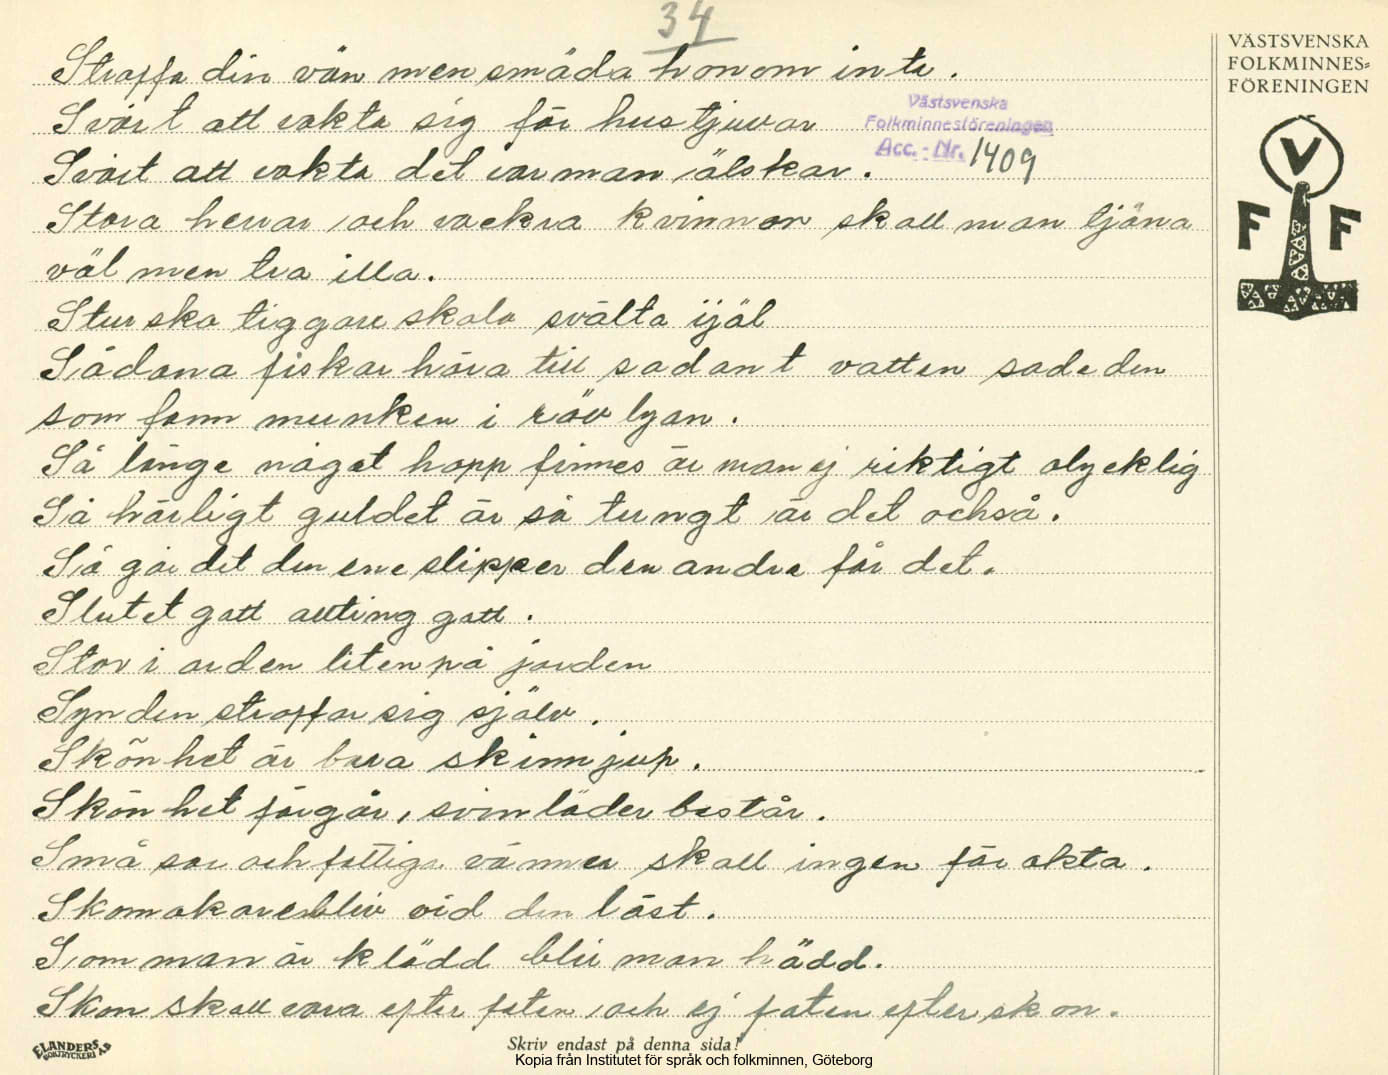 34
VÄSTSVENSKA
FOLKMINNES-
FÖRENINGEN
V
F F
Straffa din vän men smäda honom inte.
Svårt att vakta sig för hustjuvar
Västsvenska
Folkminnesföreningen
Acc. - Nr. 1409
Svårt att vakta det var man älskar.
Stora herrar och vackra kvinnor skall man tjäna
väl men tra illa.
Sturska tiggare skola svälta ijäl
Sådana fiskar höra till sadant vatten sade den
som fann munken i räv lyan.
Så länge något hopp finnes är man ej riktigt olycklig
Så härligt guldet är så tungt är det ochså.
Så går det den ene slipper den andra får det.
Slutet gott allting gott.
Stor i orden liten på jorden
Synden straffar sig själv.
Skönhet är bara skinnjup.
Skönhet förgår, svinläder består.
Små sar och fattiga vänner skall ingen för akta.
Skomakaren bliv vid din läst.
Som man är klädd blir man hädd.
Skon skall vara efter foten och ej foten efter skon.
ELANDERS
BOKTRYCKERI A B
Skriv endast på denna sida!
Kopia från Institutet för språk och folkminnen, Göteborg